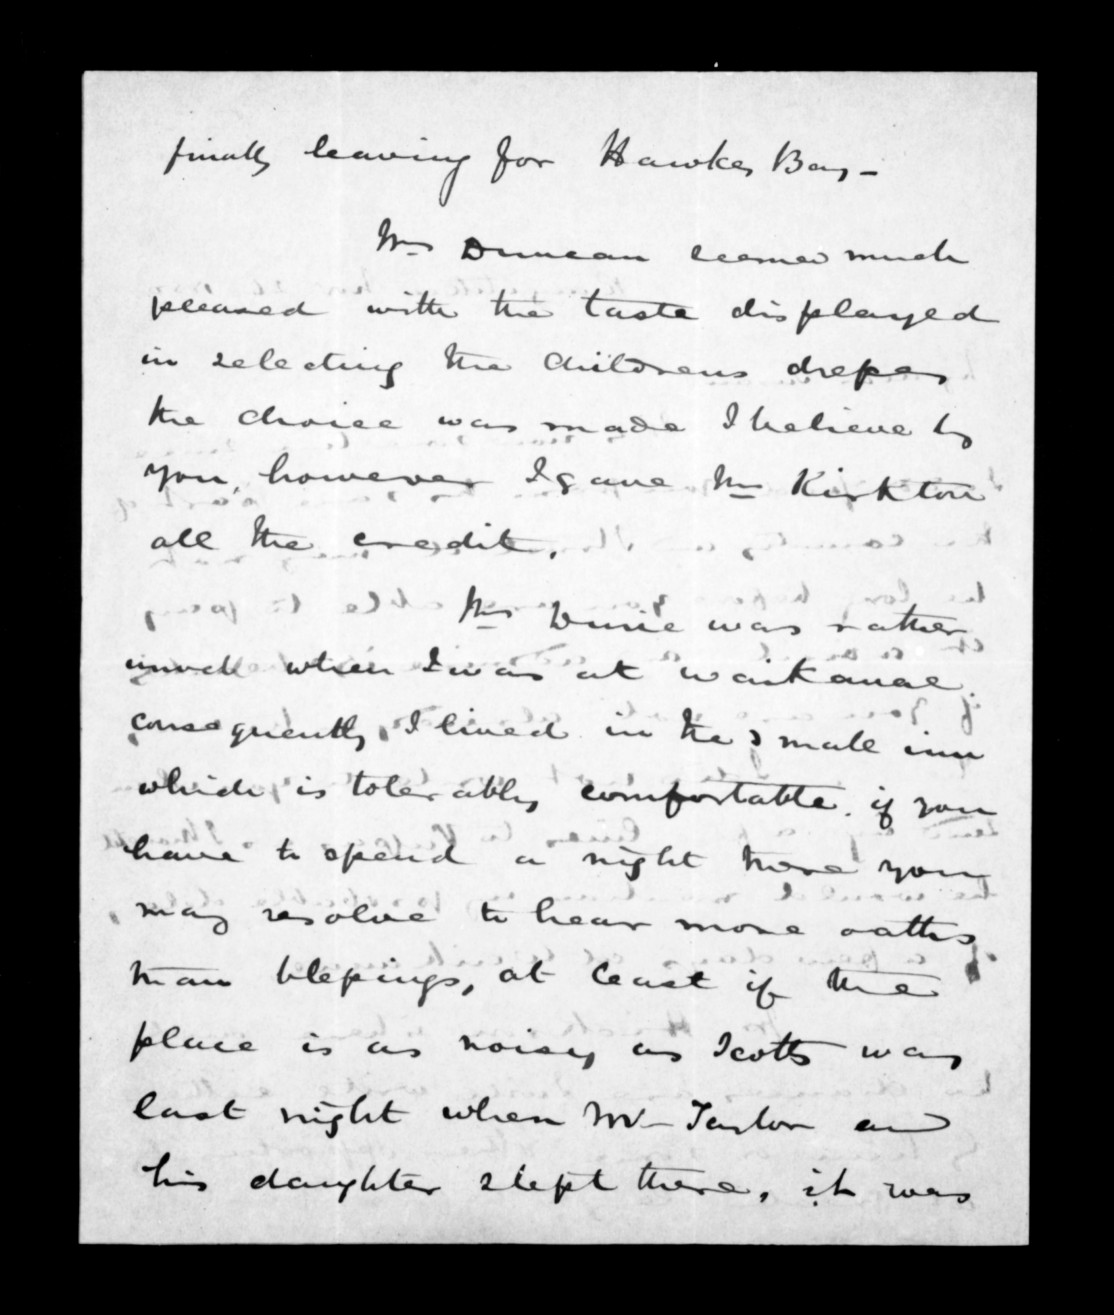 finally leaving for Hawkes Bay -
Mrs Duncan seemed much
pleased with the taste displayed
in selecting the childrens dresses
the choice was made I believe by
you, however I gave Mrs Kirkton
all the credit.
Mrs Durie was rather
when I was at Waikanae.
consequently, I lived in the small inn
which is tolerably comfortable. if you
have to spend a night there you
may resolve to hear more oaths
than blessings, at least if the
place is as noisy as Scotts was
last night when Mr Taylor and
his daughter slept there, it was